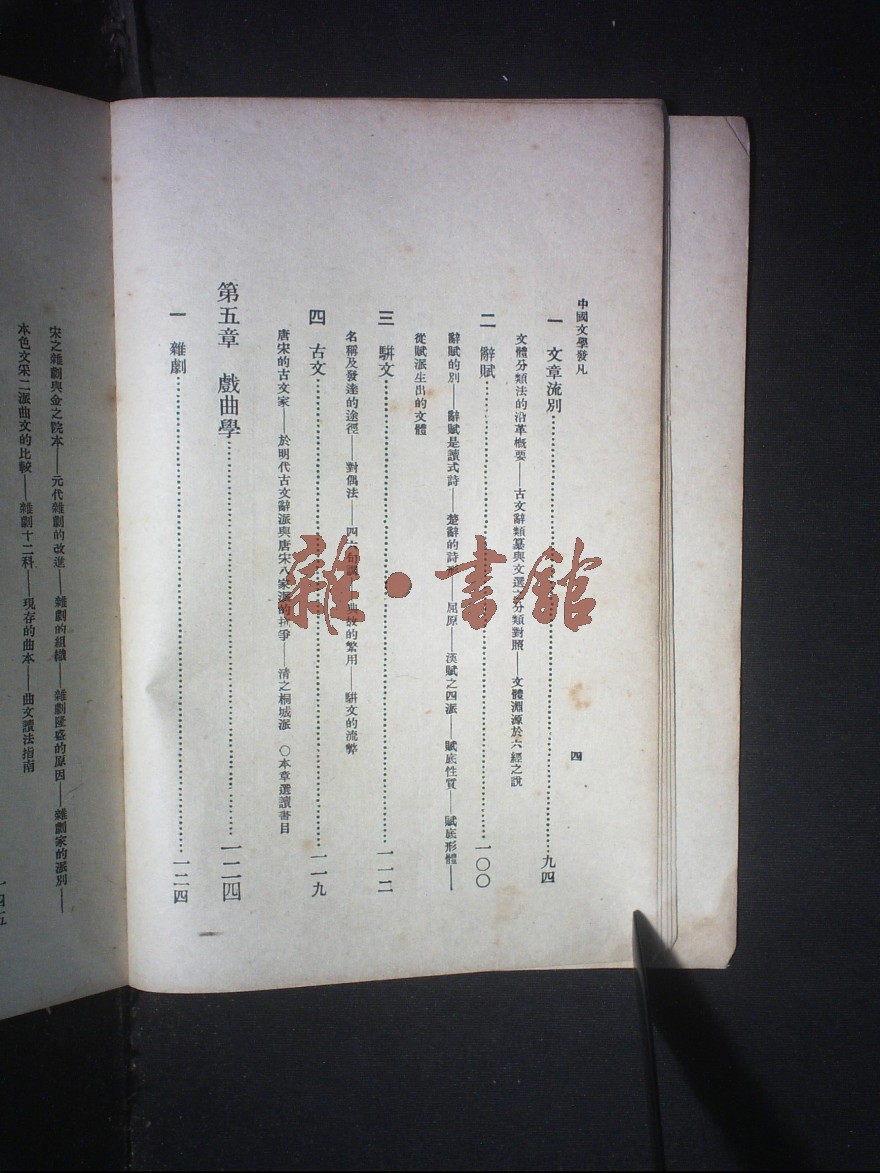 中國文學發凡
四
一 文章流別……九四
文體分類法的沿革概要——古文辭類纂與文選之分類對照——文體淵源於六經之說
二 辭賦……一〇〇
辭賦的別——辭賦是讀式詩——楚辭的詩形——屈原——漢賦之四派——賦底性質——賦底形體——
從賦派生出的文體
三 駢文……一一二
名稱及發達的途徑——對偶法——四六句調——典故的繁用——駢文的流弊
四 古文……一一九
唐宋的古文家——於明代古文辭派與唐宋八家派的抗爭——清之桐城派 〇本章選讀書目
第五章 戲曲學……一二四
一 雜劇……一二四
宋之雜劇與金之院本——元代雜劇的改進——雜劇的組織——雜劇隆盛的原因——雜劇家的派別——
本色文采二派曲文的比較——雜劇十二科——現存的曲本——曲文讀法指南
雜·書館